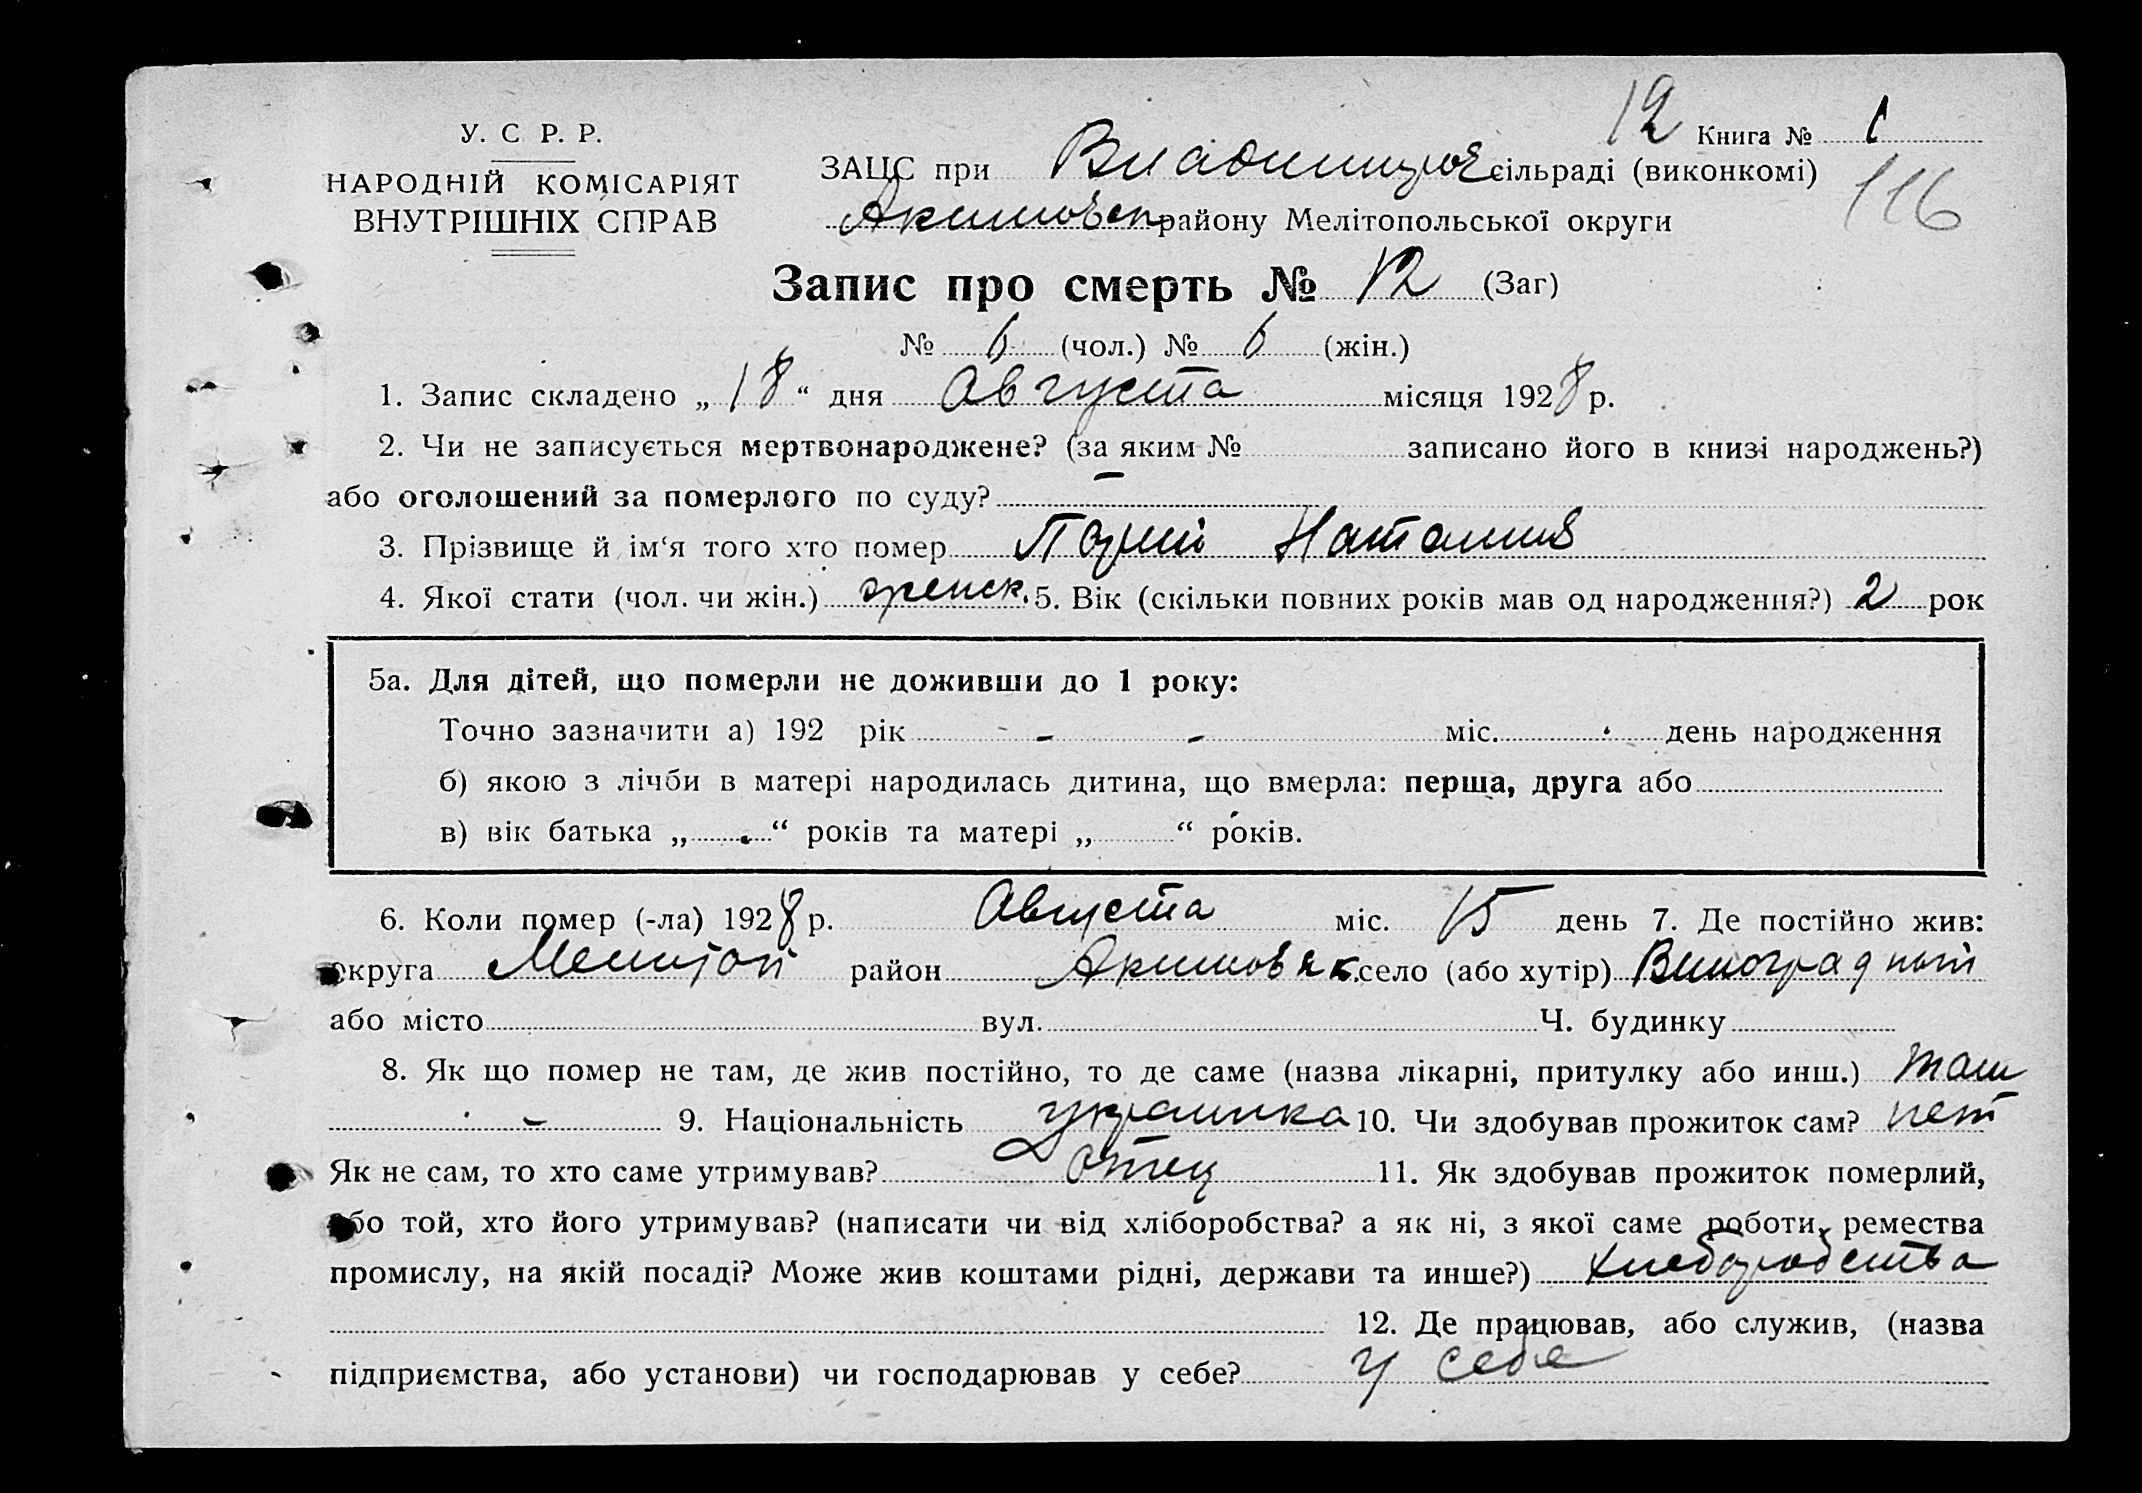 12 Книга № 1
У. С. Р. Р.
НАРОДНІЙ КОМІСАРІЯТ
ВНУТРІШНІХ СПРАВ
ЗАЦС при сільраді (виконкомі)
116
Акимовск району Мелітопольської округи
Запис про смерть № 12 (Заг)
№ 6 (чол.) № 6 (жін.)
1. Запис складено „ 18 “ дня Августа місяця 1928 р.
2. Чи не записується мертвонароджене? (за яким № записано його в книзі народжень?)
або оголошений за померлого по суду? —
3. Прізвище й ім‘я того хто помер Наталия
4. Якої стати (чол. чи жін.) женск. 5. Вік (скільки повних років мав од народження?) 2 рок
5а. Для дітей, що померли не доживши до 1 року:
Точно зазначити а) 192 рік - - міс. день народження
б) якою з лічби в матері народилась дитина, що вмерла: перша, друга або
в) вік батька „ “ років та матері „ “ років.
6. Коли помер (-ла) 1928 р. Августа міс. 15 день 7. Де постійно жив:
округа Мелитоп район Акимовск село (або хутір)
або місто вул. Ч. будинку
8. Як що помер не там, де жив постійно, то де саме (назва лікарні, притулку або инш.) там
- 9. Національність украинка 10. Чи здобував прожиток сам? нет
Як не сам, то хто саме утримував? отец 11. Як здобував прожиток померлий,
або той, хто його утримував? (написати чи від хліборобства? а як ні, з якої саме роботи, ремества
промислу, на якій посаді? Може жив коштами рідні, держави та инше?) хлебородства
12. Де працював, або служив, (назва
підприємства, або установи) чи господарював у себе? у себе